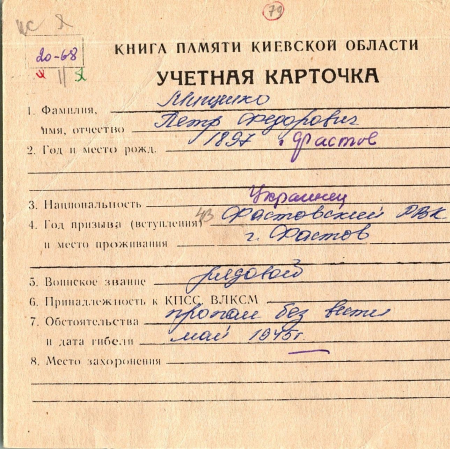 79
20-68
КНИГА ПАМЯТИ КИЕВСКОЙ ОБЛАСТИ
УЧЕТНАЯ КАРТОЧКА
1. Фамилия,
имя, отчество Петр Федорович
2. Год и место рожд. 1897 г. Фастов
3. Национальность Украинец
4. Год призыва (вступления) 43 Фастовский РВК
и место проживания г. Фастов
5. Воинское звание рядовой
6. Принадлежность к КПСС, ВЛКСМ
7. Обстоятельства пропал без вести
и дата гибели май 1945г
8. Место захоронения